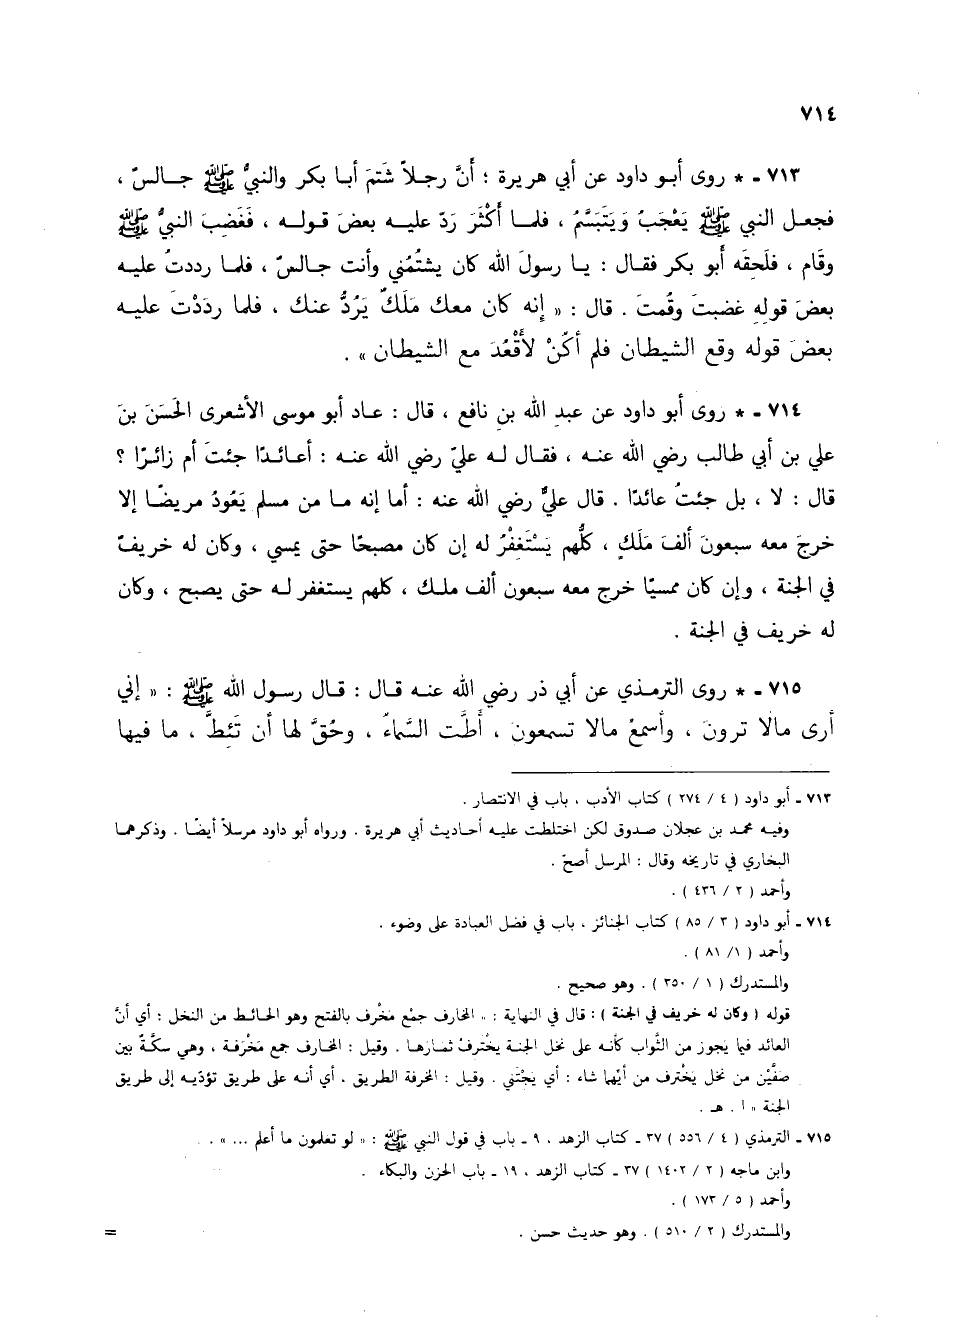 ٧١٤
٧١٣ ـ * روى أبو داود عن أبي هريرة ؛ أنَّ رجلاً شَتَمَ أبا بكر والنبيُّ ﷺ جالسٌ ،
فجعل النبي ﷺ يَعْجَبُ وَيَتَبَسَّمُ ، فلما أَكْثَرَ رَدّ عليه بعضَ قوله ، فَغَضِبَ النبيُّ ﷺ
وقَام ، فلَحِقَه أبو بكر فقال : يا رسولَ الله كان يشتُمُني وأنت جالسٌ ، فلما رددتُ عليه
بعضَ قولِهِ غضبتَ وقُمتَ . قال : « إنه كان معك مَلَكٌ يَرُدُّ عنك ، فلما ردَدْتَ عليه
بعضَ قوله وقع الشيطان فلم أكنْ لأقْعُدَ مع الشيطان » .
٧١٤ ـ * روى أبو داود عن عبدِ الله بنِ نافع ، قال : عاد أبو موسى الأشعرى الحَسَنَ بنَ
علي بن أبي طالب رضي الله عنه ، فقال له عليّ رضي الله عنه : أعائدًا جئتَ أم زائرًا ؟
قال : لا ، بل جئتُ عائدًا . قال عليٌّ رضي الله عنه : أما إنه ما من مسلم يَعُودُ مريضًا إلا
خرجَ معه سبعونَ ألفَ مَلَكٍ ، كلُّهم يَسْتَغفِرُ له إن كان مصبحًا حتى يمسي ، وكان له خريفٌ
في الجنة ، وإن كان ممسيًا خرج معه سبعون ألف ملك ، كلهم يستغفر له حتى يصبح ، وكان
له خريف في الجنة .
٧١٥ ـ * روى الترمذي عن أبي ذر رضي الله عنه قال : قال رسول الله ﷺ : « إني
أرى مالا ترونَ ، وأسمعُ مالا تسمعونَ ، أَطَّت السَّماءُ ، وحُقَّ لها أن تَئِطَّ ، ما فيها
٧١٣ ـ أبو داود ( ٤ / ٢٧٤ ) كتاب الأدب ، باب في الانتصار .
وفيه محمد بن عجلان صدوق لكن اختلطت عليه أحاديث أبي هريرة . ورواه أبو داود مرسلاً أيضًا . وذكرهما
البخاري في تاريخه وقال : المرسل أصحّ .
وأحمد ( ٢ / ٤٣٦ ) .
٧١٤ ـ أبو داود ( ٣ / ٨٥ ) كتاب الجنائز ، باب في فضل العيادة على وضوء .
وأحمد ( ١/ ٨١ ) .
والمستدرك ( ١ / ٣٥٠ ) . وهو صحيح .
قوله ( وكان له خريف في الجنة ) : قال في النهاية : « المخارف جمْع مَخْرف بالفتح وهو الحائط من النخل : أي أنَّ
العائد فيما يجوز من الثَّواب كأنه على نخل الجنة يخْترفُ ثمارها . وقيل : المخارف جمع مَخْرَفة ، وهي سكَّةٌ بين
صفَّيْن من نخل يَخْترف من أيهما شاء : أي يَجْتني . وقيل : المخرفة الطريق ، أي أنه على طريق تؤدّيه إلى طريق
الجنة » ا . هـ .
٧١٥ ـ الترمذي ( ٤ / ٥٥٦ ) ٣٧ ـ كتاب الزهد ، ٩ ـ باب في قول النبي ﷺ : « لو تعلمون ما أعلم ... » .
وابن ماجه ( ٢ / ١٤٠٢ ) ٣٧ ـ كتاب الزهد ، ١٩ ـ باب الحزن والبكاء .
وأحمد ( ٥ / ١٧٣ ) .
والمستدرك ( ٢ / ٥١٠ ) . وهو حديث حسن .
=